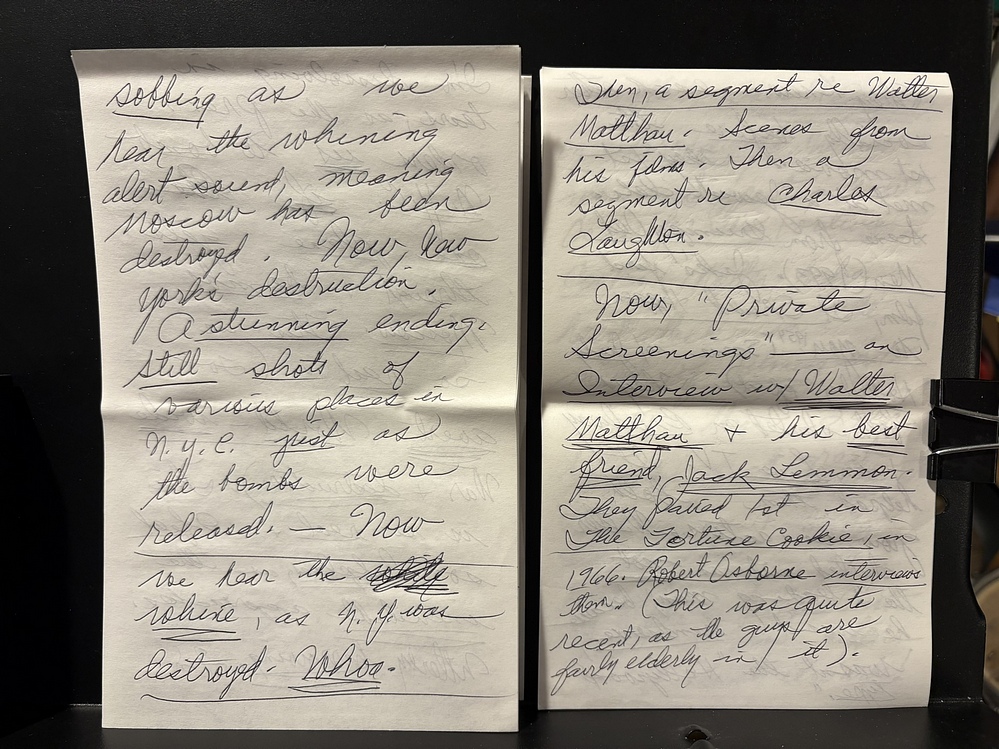 sobbing as we
hear the whining
alert sound, meaning
Moscow has been
destroyed. Now, New
York's destruction.
A stunning ending.
Still shots of
various places in
N.Y.C. just as
the bombs were
released. — Now
we hear the
whine, as N.Y. was
destroyed. Whoa.
Then, a segment re Walter
Matthau. Scenes from
his films. Then a
segment re Charles
Laughton.
Now, "Private
Screenings" — an
Interview w/ Walter
Matthau + his best
friend, Jack Lemmon.
They paired 1st in
The Fortune Cookie, in
1966. Robert Osborne interviews
them. (This was quite
recent, as the guys are
fairly elderly in it).